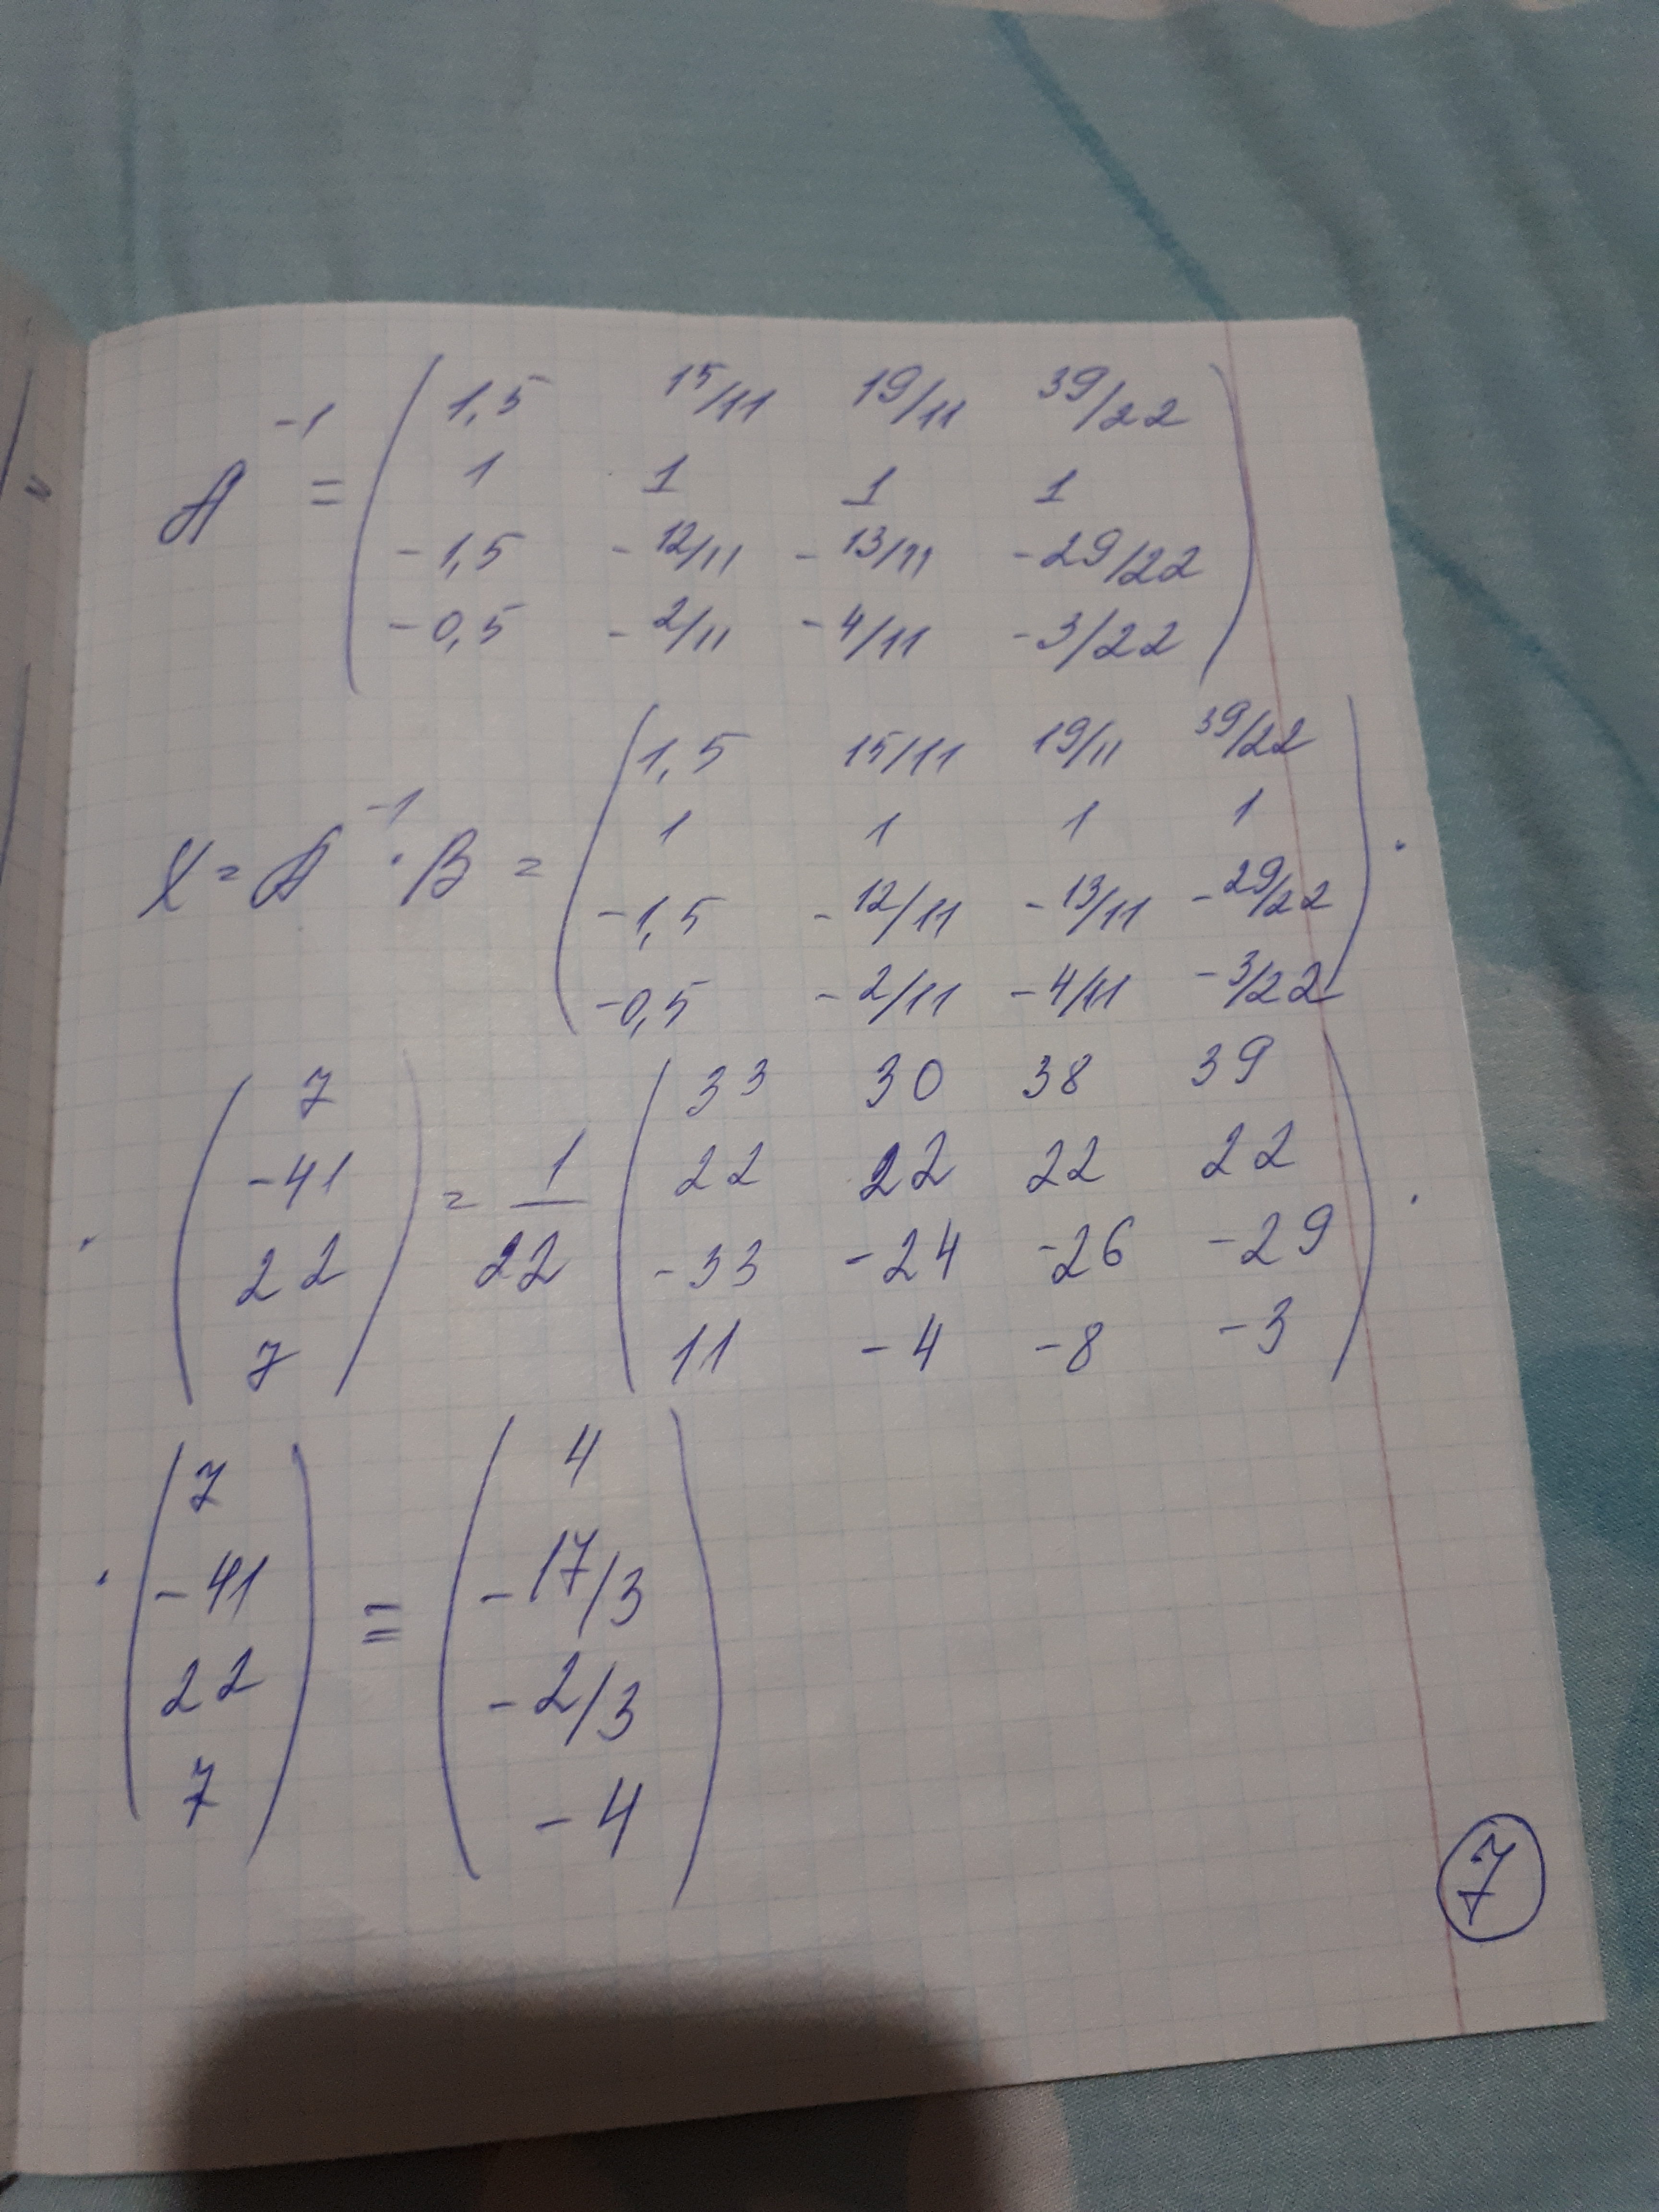 A⁻¹ = ( 1,5 15/11 19/11 39/22
1 1 1 1
-1,5 -12/11 -13/11 -29/22
-0,5 -2/11 -4/11 -3/22 )
X = A⁻¹ · B = ( 1,5 15/11 19/11 39/22
1 1 1 1
-1,5 -12/11 -13/11 -29/22
-0,5 -2/11 -4/11 -3/22 ) ·
· ( 7 -41 22 7 ) = 1/22 ( 33 30 38 39
22 22 22 22
-33 -24 -26 -29
11 -4 -8 -3 ) ·
· ( 7 -41 22 7 ) = ( 4 -17/3 -2/3 -4 )
7